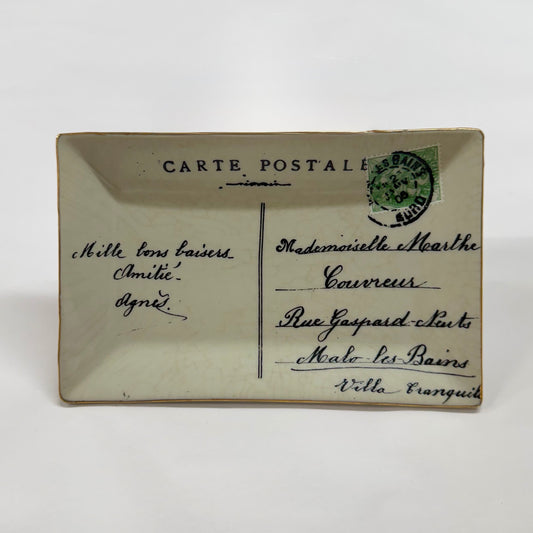 CARTE POSTALE
LES BAINS
NORD
Mille bons baisers
Amitié
Agnès.
Mademoiselle Marthe
Couvreur
Rue Gaspard Neuts
Malo-les-Bains
Villa Tranquile